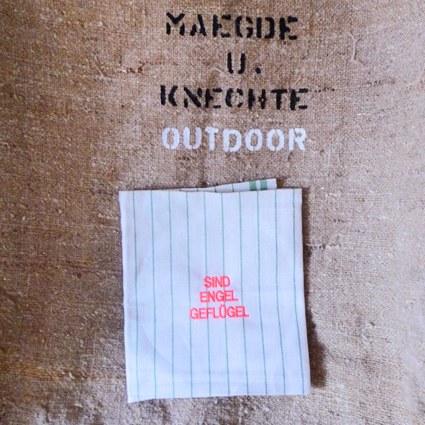 MAEGDE
U.
KNECHTE
OUTDOOR
SIND
ENGEL
GEFLÜGEL